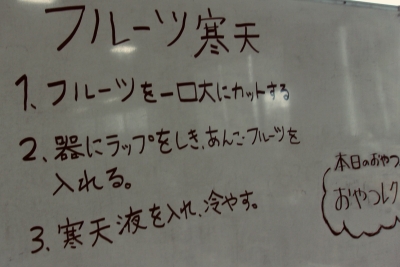 フルーツ寒天
1、フルーツを一口大にカットする
2、器にラップをしき、あんこ・フルーツを
入れる。
3、寒天液を入れ、冷やす。
本日のおやつ
おやつレク